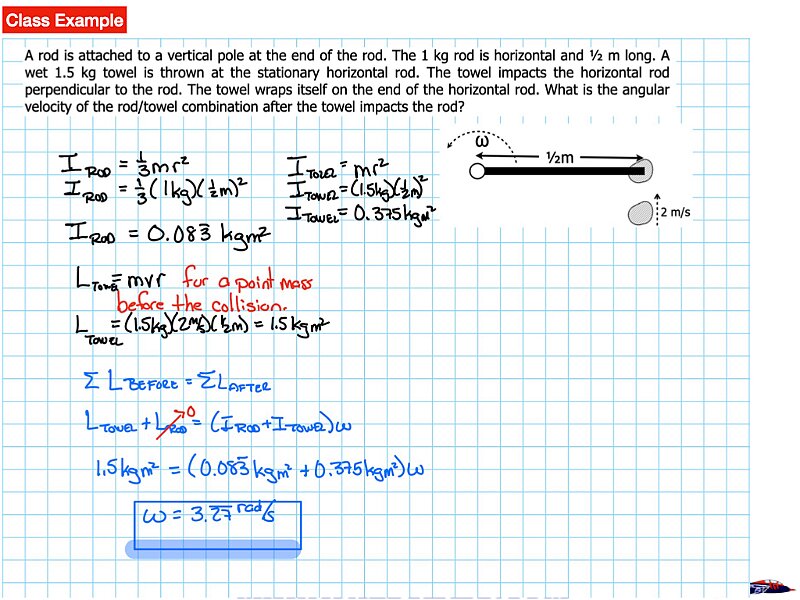 Class Example
A rod is attached to a vertical pole at the end of the rod. The 1 kg rod is horizontal and ½ m long. A
wet 1.5 kg towel is thrown at the stationary horizontal rod. The towel impacts the horizontal rod
perpendicular to the rod. The towel wraps itself on the end of the horizontal rod. What is the angular
velocity of the rod/towel combination after the towel impacts the rod?
ω
½m
2 m/s
I ROD = 1/3 mr²
I ROD = 1/3 (1kg)(1/2m)²
I ROD = 0.083̅ kgm²
I TOWEL = mr²
I TOWEL = (1.5kg)(1/2m)²
I TOWEL = 0.375kgm²
L TOWEL = mvr for a point mass
before the collision.
L TOWEL = (1.5kg)(2m/s)(1/2m) = 1.5kgm²
Σ L BEFORE = Σ L AFTER
L TOWEL + L ROD 0 = (I ROD + I TOWEL)ω
1.5kgm² = (0.083̅ kgm² + 0.375kgm²)ω
ω = 3.2̅7̅ rad/s